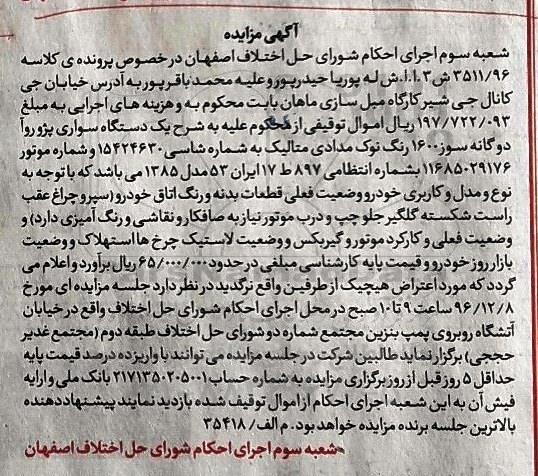 آگهی مزایده
شعبه سوم اجرای احکام شورای حل اختلاف اصفهان در خصوص پرونده ی کلاسه
۳۵۱۱/۹۶ ش ۳ ا.ا.ش له پوریا حیدرپور و علیه محمد باقرپور به آدرس خیابان جی
کانال جی شیر کارگاه مبل سازی ماهان بابت محکوم به و هزینه های اجرایی به مبلغ
۱۹۷/۷۲۲/۰۹۳ ریال اموال توقیفی از محکوم علیه به شرح یک دستگاه سواری پژو روآ
دوگانه سوز ۱۶۰۰ رنگ نوک مدادی متالیک به شماره شاسی ۱۵۴۲۴۶۳۰ و شماره موتور
۱۱۶۸۵۰۲۹۱۷۶ بشماره انتظامی ۸۹۷ ط ۱۷ ایران ۵۳ مدل ۱۳۸۵ می باشد که با توجه به
نوع و مدل و کاربری خودرو وضعیت فعلی قطعات بدنه و رنگ اتاق خودرو (سپر و چراغ عقب
راست شکسته گلگیر جلو چپ و درب موتور نیاز به صافکار و نقاشی و رنگ آمیزی دارد) و
وضعیت فعلی و کارکرد موتور و گیربکس و وضعیت لاستیک چرخ ها استهلاک و وضعیت
بازار روز خودرو و قیمت پایه کارشناسی مبلغی در حدود ۶۵/۰۰۰/۰۰۰ ریال برآورد و اعلام می
گردد که مورد اعتراض هیچیک از طرفین واقع نگردید در نظر دارد جلسه مزایده ای مورخ
۹۶/۱۲/۸ ساعت ۹ تا ۱۰ صبح در محل اجرای احکام شورای حل اختلاف واقع در خیابان
آتشگاه روبروی پمپ بنزین مجتمع شماره دو شورای حل اختلاف طبقه دوم (مجتمع غدیر
حججی) برگزار نماید طالبین شرکت در جلسه مزایده می توانند با واریز ده درصد قیمت پایه
حداقل ۵ روز قبل از روز برگزاری مزایده به شماره حساب ۲۱۷۱۳۵۰۲۰۵۰۰۱ بانک ملی و ارایه
فیش آن به این شعبه اجرای احکام از اموال توقیف شده بازدید نمایند پیشنهاد دهنده
بالاترین جلسه برنده مزایده خواهد بود. م الف/ ۳۵۴۱۸
شعبه سوم اجرای احکام شورای حل اختلاف اصفهان